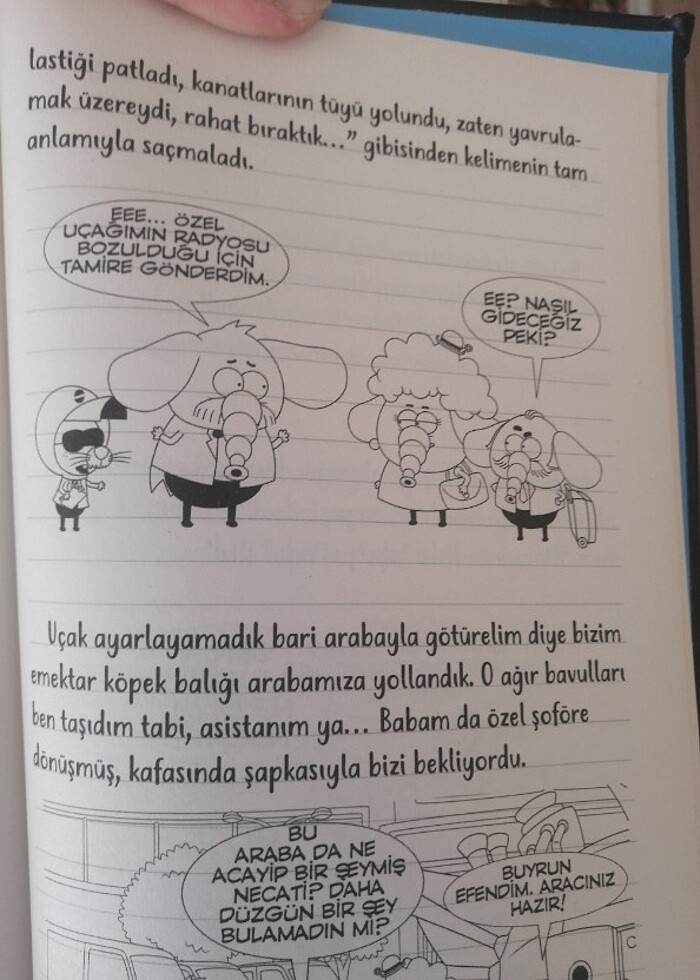 lastiği patladı, kanatlarının tüyü yolundu, zaten yavrula-
mak üzereydi, rahat bıraktık...” gibisinden kelimenin tam
anlamıyla saçmaladı.
EEE... ÖZEL
UÇAĞIMIN RADYOSU
BOZULDUĞU İÇİN
TAMİRE GÖNDERDİM.
EE? NASIL
GİDECEĞİZ
PEKİ?
Uçak ayarlayamadık bari arabayla götürelim diye bizim
emektar köpek balığı arabamıza yollandık. O ağır bavulları
ben taşıdım tabi, asistanım ya... Babam da özel şoföre
dönüşmüş, kafasında şapkasıyla bizi bekliyordu.
BU
ARABA DA NE
ACAYİP BİR ŞEYMİŞ
NECATİ? DAHA
DÜZGÜN BİR ŞEY
BULAMADIN MI?
BUYRUN
EFENDİM. ARACINIZ
HAZIR!